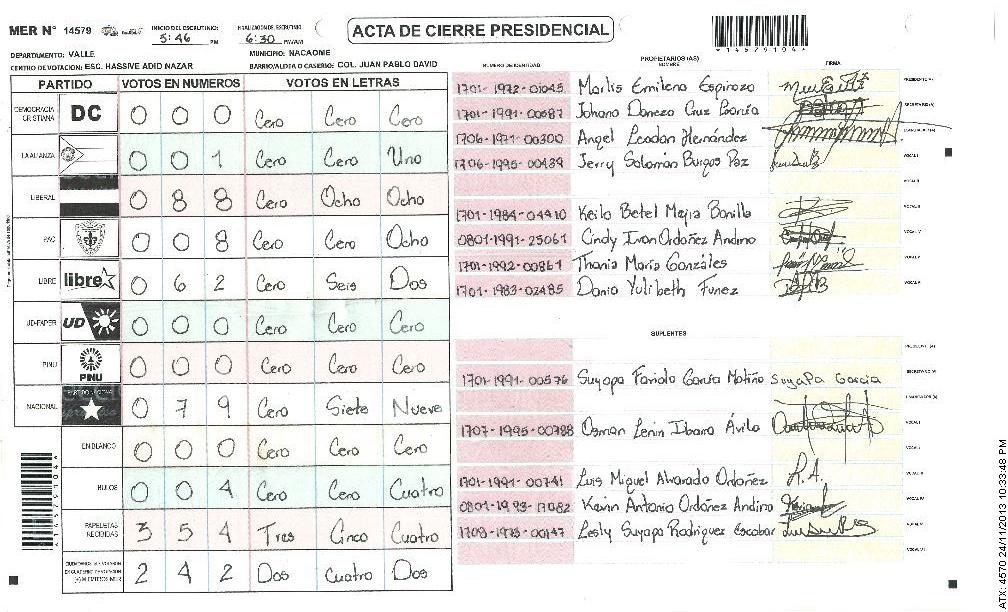 MER Nº 14579 INICIO DEL ESCRUTINIO: 5:46 PM FINALIZACION DE ESCRUTINIO: 6:30 PM/AM ACTA DE CIERRE PRESIDENCIAL
145791044
DEPARTAMENTO: VALLE MUNICIPIO: NACAOME
CENTRO DE VOTACION: ESC. HASSIVE ADID NAZAR BARRIO/ALDEA O CASERIO: COL. JUAN PABLO DAVID
PARTIDO VOTOS EN NUMEROS VOTOS EN LETRAS
DEMOCRACIA CRISTIANA DC 0 0 0 Cero Cero Cero
LA ALIANZA 0 0 1 Cero Cero Uno
LIBERAL 0 8 8 Cero Ocho Ocho
PAC 0 0 8 Cero Cero Ocho
LIBRE libre 0 6 2 Cero Seis Dos
UD-FAPER UD 0 0 0 Cero Cero Cero
PINU PINU 0 0 0 Cero Cero Cero
NACIONAL 0 7 9 Cero Siete Nueve
EN BLANCO 0 0 0 Cero Cero Cero
NULOS 0 0 4 Cero Cero Cuatro
PAPELETAS RECIBIDAS 3 5 4 Tres Cinco Cuatro
2 4 2 Dos Cuatro Dos
PROPIETARIOS (AS)
NUMERO DE IDENTIDAD NOMBRE FIRMA
1701-1972-01045 Marlis Emilena Espinozo PRESIDENTE(A)
1701-1991-00687 Johana Daneza Cruz García SECRETARIO(A)
1706-1971-00300 Angel Leadan Hernández
1706-1995-00439 Jerry Salomon Burgos Paz VOCAL I
VOCAL II
1701-1984-04410 Keilo Betel Mejia Bonilla VOCAL III
0801-1991-25061 Cindy Ivon Ordoñez Andino VOCAL IV
1701-1992-00861 Thania María Gonzáles VOCAL V
1701-1983-02485 Dania Yulibeth Funez
SUPLENTES
PRESIDENTE (A)
1701-1991-00576 Suyapa Farida García Motiño Suyapa Garcia SECRETARIO(A)
1707-1995-00788 Osman Lenin Ibarra Ávila VOCAL I
1701-1991-00741 Luis Miguel Alvarado Ordoñez L.A. VOCAL III
0801-1993-17082 Kevin Antonio Ordoñez Andino VOCAL IV
1709-1975-00147 Lesly Suyapa Rodriguez Escobar
VOCAL VI
145791044
ATX: 4570 24/11/2013 10:33:48 PM